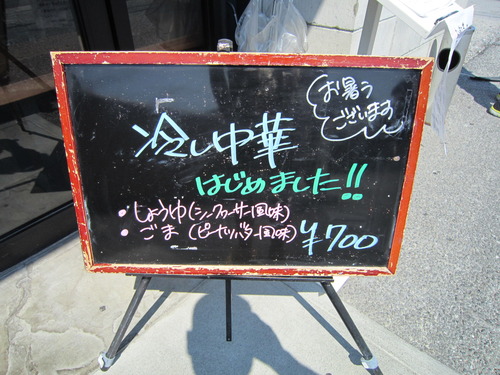 お暑う
ございます
冷し中華
はじめました!!
・しょうゆ(シークヮーサー風味)
・ごま(ピーナッツバター風味)
¥700